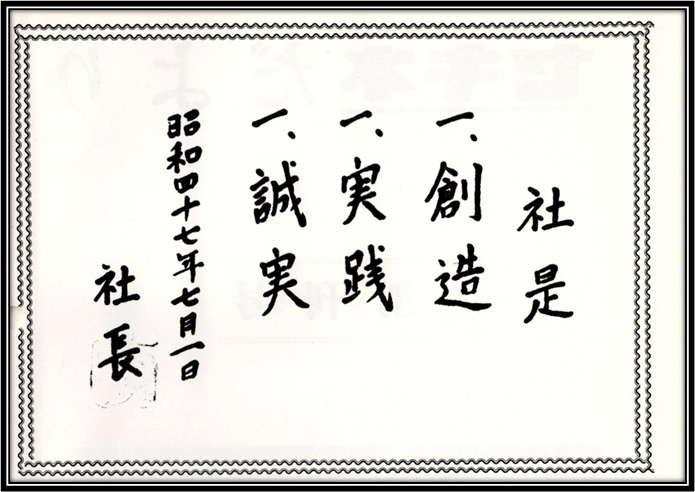 社是
一、創造
一、実践
一、誠実
昭和四十七年七月一日
社長